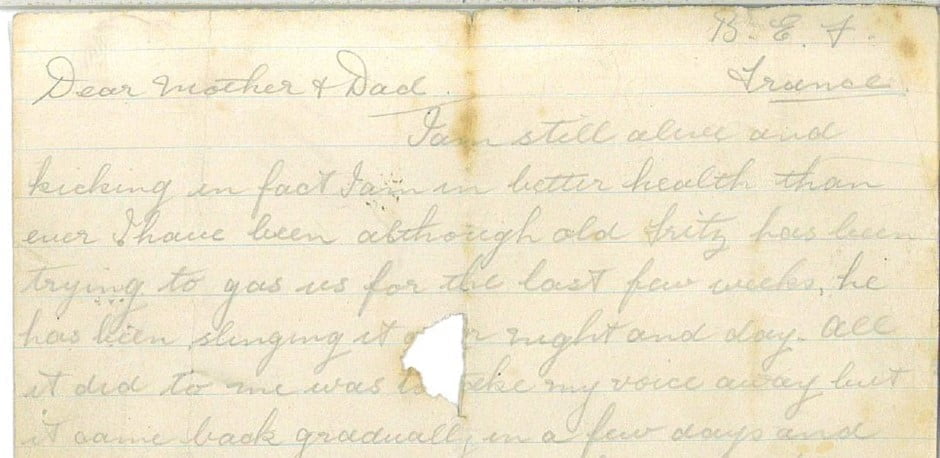 B. E. F.
Dear Mother & Dad France.
I am still alive and
kicking in fact I am in better health than
ever I have been although old Fritz has been
trying to gas us for the last few weeks, he
has been slinging it night and day. All
it did to me was my voice away but
it came back gradually in a few days and